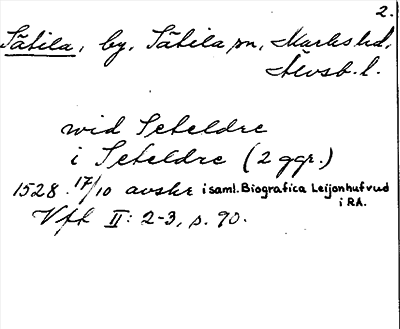 2.
Sätila, by, Sätila sn, Marks hd,
Älvsb. l.
wid Seteldre
i Seteldre (2 ggr.)
1528 17/10 avskr i saml. Biografica Leijonhufvud
i RA.
Vfk II: 2-3, s. 90.